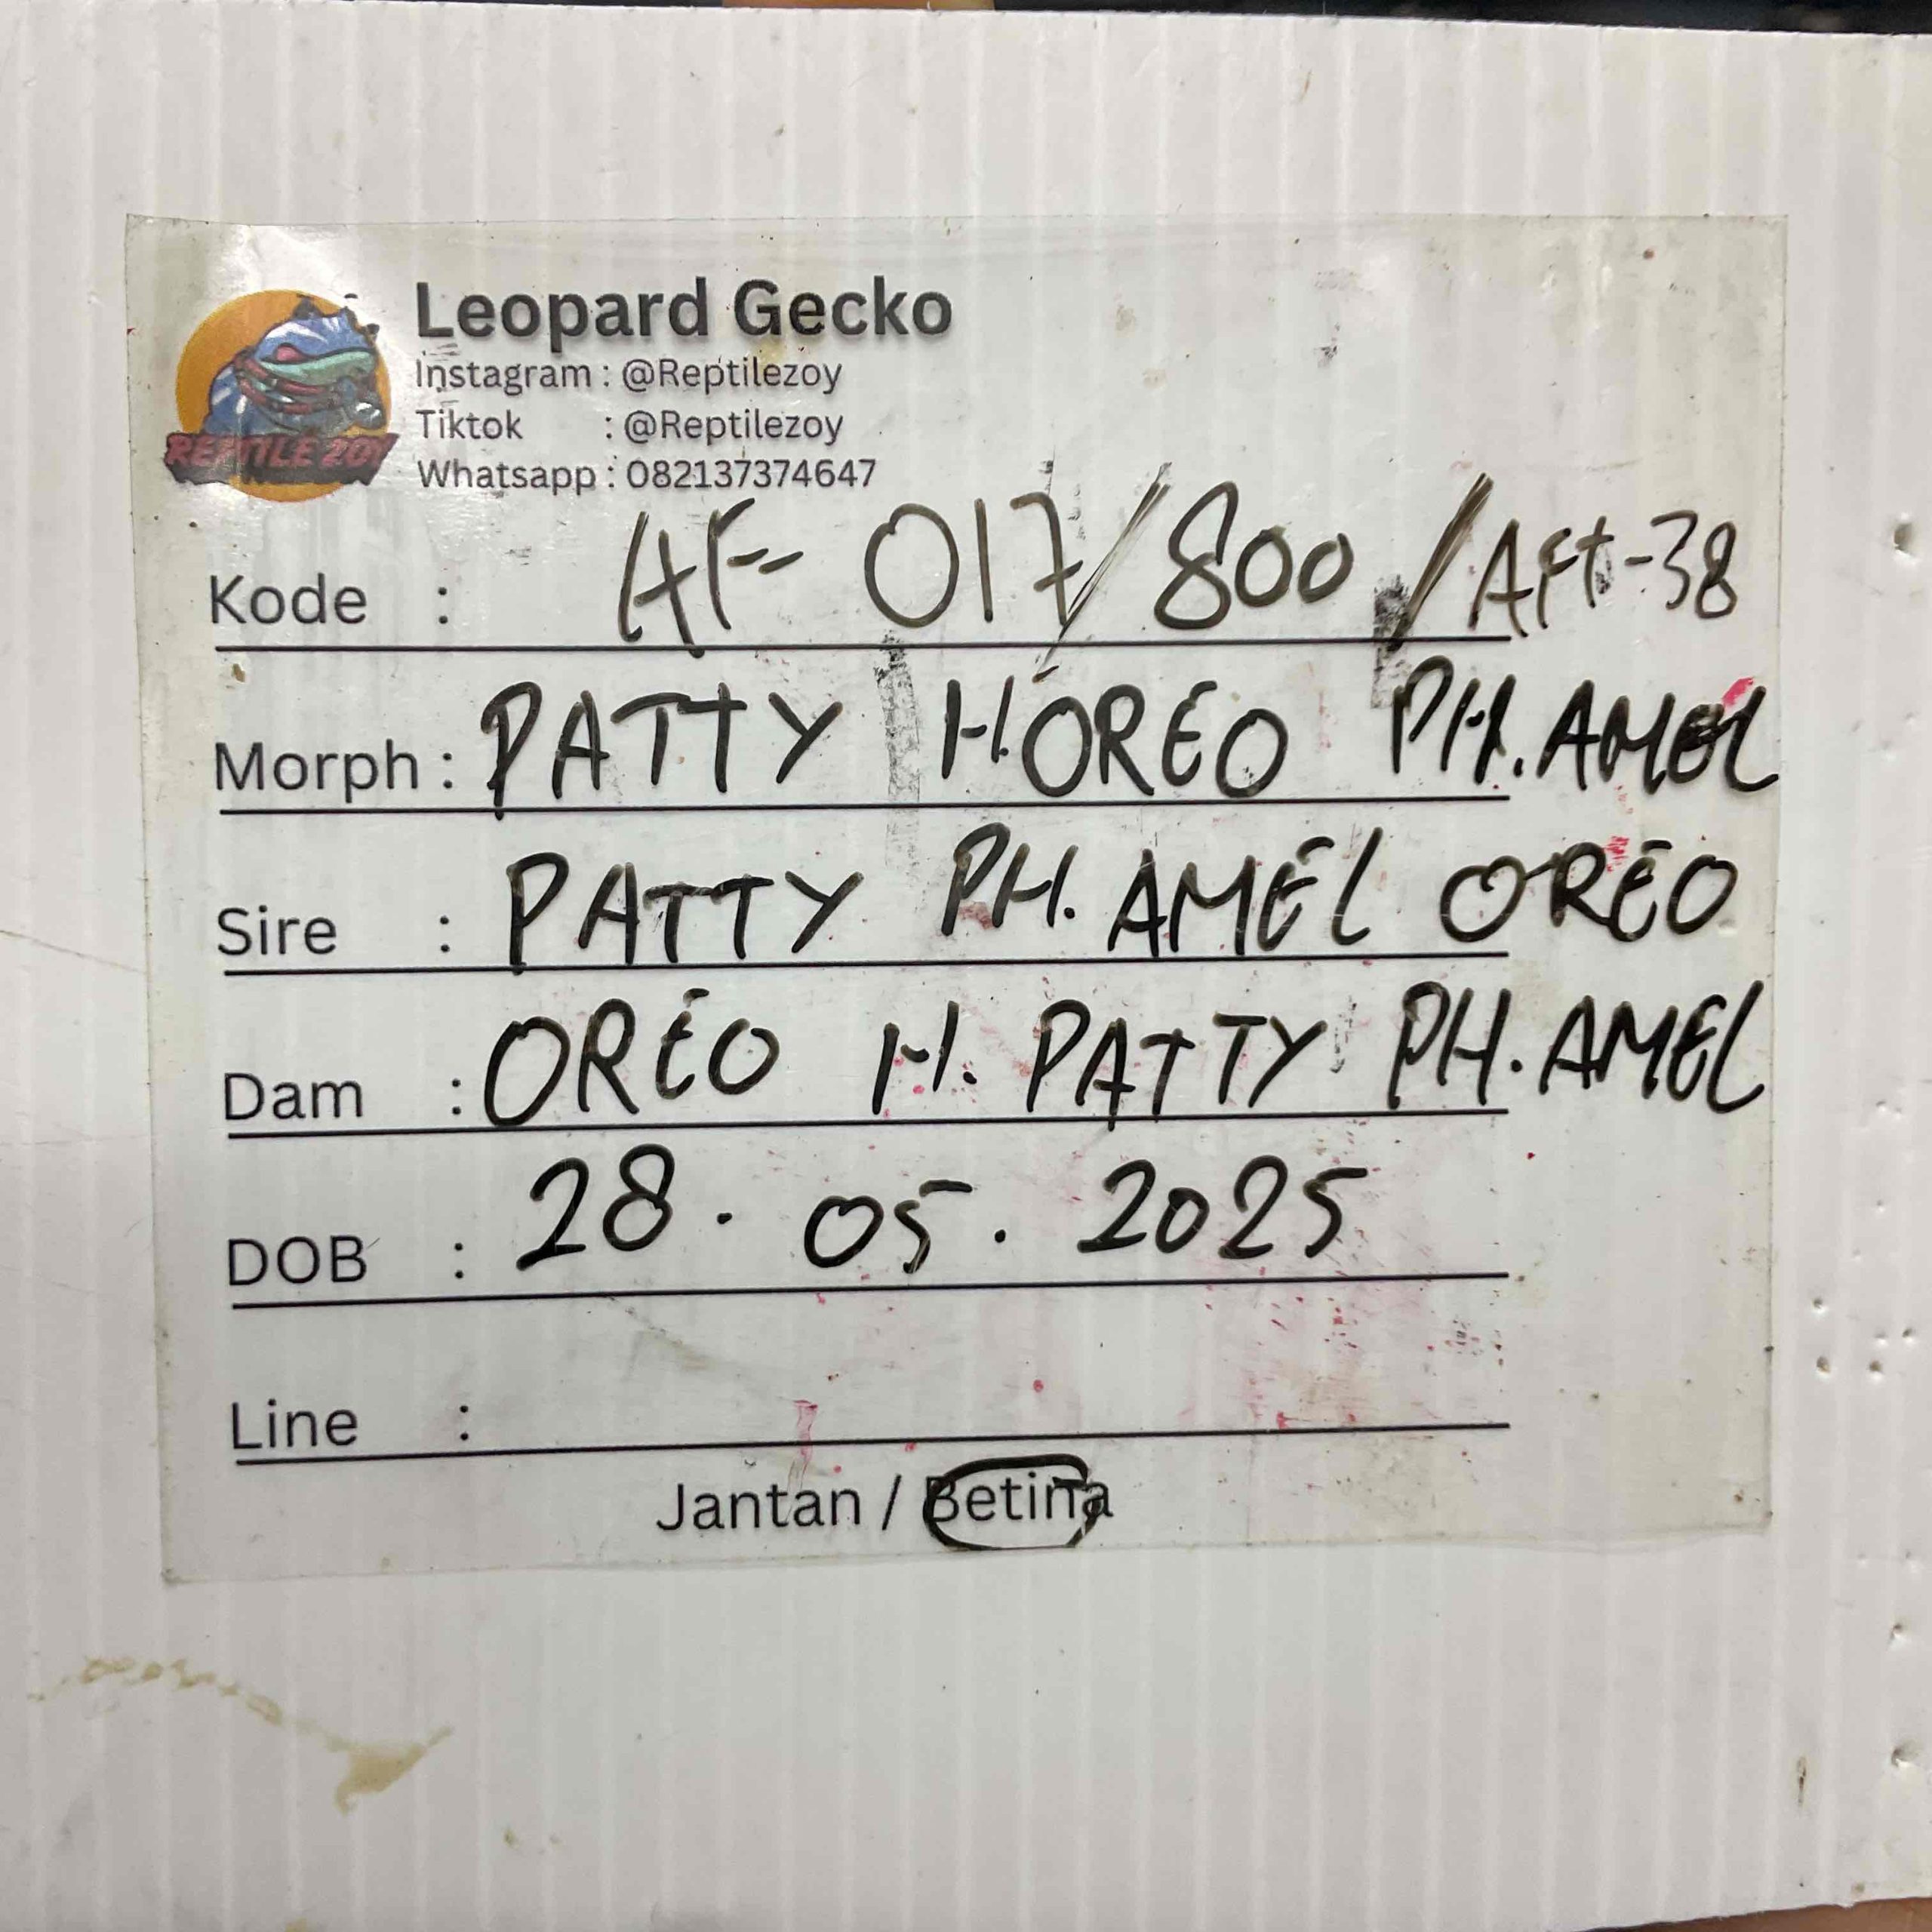 Leopard Gecko
Instagram : @Reptilezoy
Tiktok : @Reptilezoy
Whatsapp : 082137374647
REPTILE ZOY
Kode : AF- 017/800/Aft-38
Morph : PATTY H.OREO PH.AMEL
Sire : PATTY PH. AMEL OREO
Dam : OREO H. PATTY PH.AMEL
DOB : 28. 05. 2025
Line :
Jantan / Betina